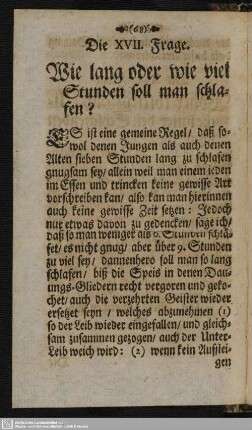 (68)
Die XVII. Frage.
Wie lang oder wie viel
Stunden soll man schla-
fen?
ES ist eine gemeine Regel/ daß so-
wol denen Jungen als auch denen
Alten sieben Stunden lang zu schlafen
gnugsam sey/ allein weil man einem ieden
im Essen und trincken keine gewisse Art
vorschreiben kan/ also kan man hierinnen
auch keine gewisse Zeit setzen: Jedoch
nur etwas davon zu gedencken/ sage ich/
daß so man weniger als 6. Stunden schlä-
fet/ es nicht gnug/ aber über 9. Stunden
zu viel sey/ dannenhero soll man so lang
schlafen/ biß die Speis in denen Dau-
ungs-Gliedern recht vergoren und geko-
chet/ auch die verzehrten Geister wieder
ersetzet seyn/ welches abzunehmen (1)
so der Leib wieder eingefallen/ und gleich-
sam zusammen gezogen/ auch der Unter-
Leib weich wird: (2) wenn kein Aufstei-
gen